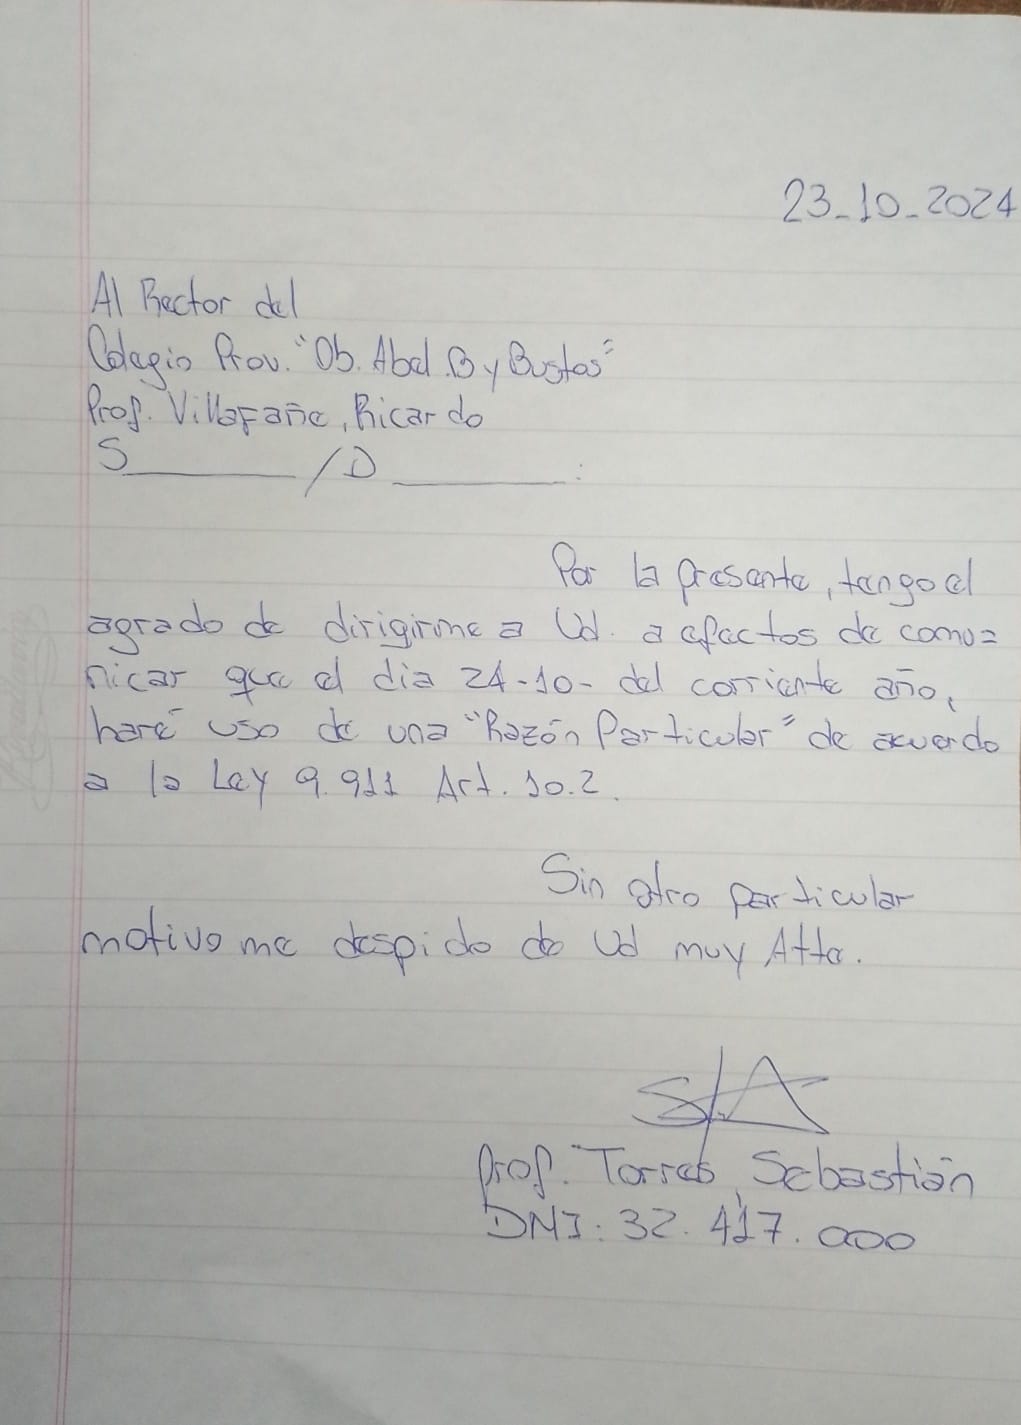 23-10-2024
Al Rector del
Colegio Prov. "Ob. Abel B y Bustos"
Prof. Villafañe, Ricardo
S______/D______:
Por la presente, tengo el
agrado de dirigirme a Ud. a efectos de comu=
nicar que el día 24-10- del corriente año,
haré uso de una "Razón Particular" de acuerdo
a la Ley 9.911 Art. 10.2.
Sin otro particular
motivo me despido de Ud muy Atte.
Prof. Torres, Sebastián
DNI: 32.417.000